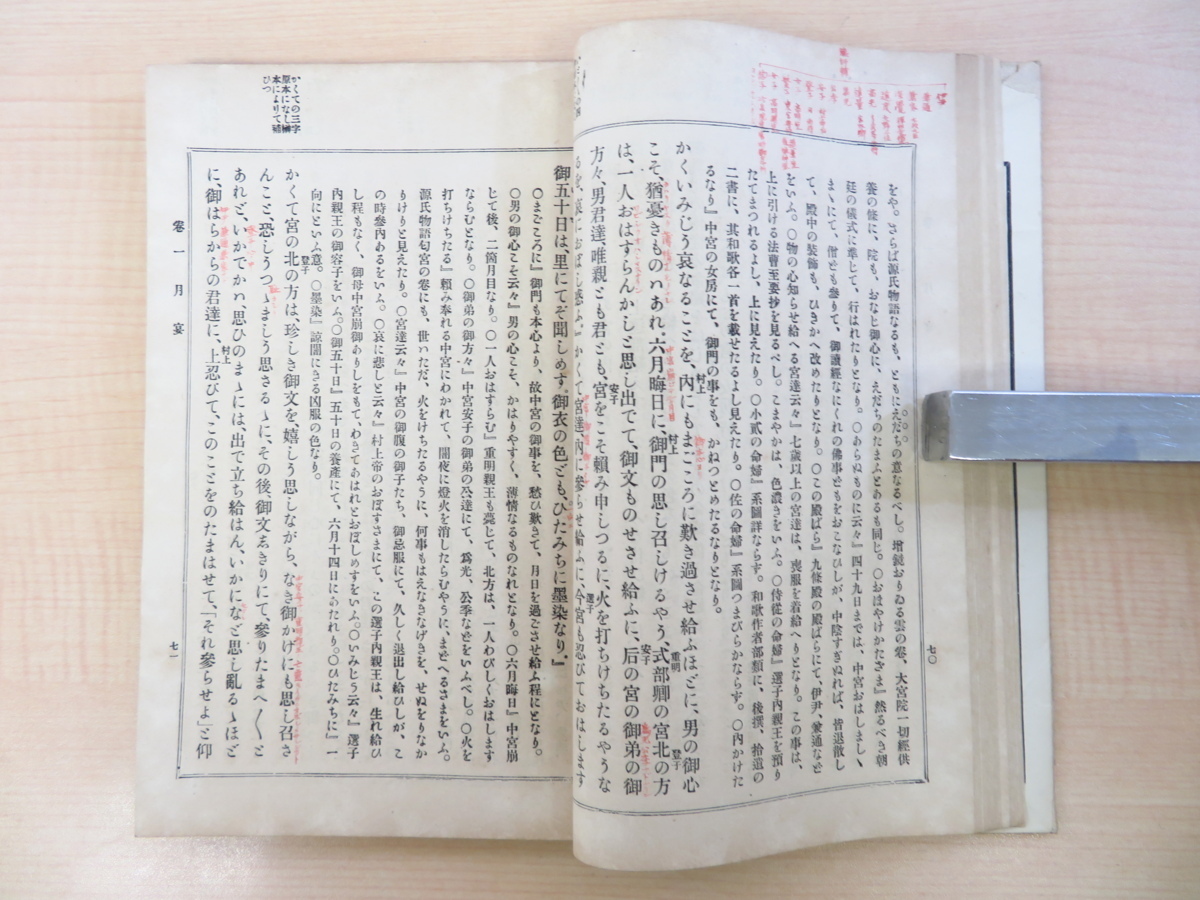 七〇
をや。さらば源氏物語なるも、ともにえだちの意なるべし。増鏡おりゐる雲の卷、大宮院一切經供
養の條に、院も、おなじ御心に、えだちのたまふとあるも同じ。〇おほやけかたざま』然るべき朝
廷の儀式に準じて、行はれたりとなり。〇あらぬものに云々』四十九日までは、中宮おはしましゝ
まゝにて、僧ども參りて、御讀經なにくれの佛事どもをおこなひしが、中陰すぎぬれば、皆退散し
て、殿中の裝飾も、ひきかへ改めたりとなり。〇この殿ばら』九條殿の殿ばらにて、伊尹、兼通など
をいふ。〇物の心知らせ給へる宮達云々』七歳以上の宮達は、喪服を着給へりとなり。この事は、
上に引ける法曹至要抄を見るべし。こまやかは、色濃きをいふ。〇侍從の命婦』選子内親王を預り
たてまつれるよし、上に見えたり。〇小貳の命婦』系圖詳ならず。和歌作者部類に、後撰、拾遺の
二書に、其和歌各一首を載せたるよし見えたり。〇佐の命婦』系圖つまびらかならず。〇内かけた
るなり』中宮の女房にて、御門の事をも、かねつとめたるなりとなり。
かくいみじう哀なることを、内にもまごころに歎き過させ給ふほどに、男の御心
こそ、猶憂きものハあれ。六月晦日に、御門の思し召しけるやう、式部卿の宮北の方
は、一人おはすらんかしと思し出でて、御文ものせさせ給ふに、后の宮の御弟の御
方々、男君達、唯親とも君とも、宮をこそ頼み申しつるに、火を打ちけちたるやうな
るを、哀におぼし惑ふ。』かくて宮達、内に參らせ給ふに、今宮も忍びておはします
かくての三字
原本になし榊
本によりて補
ひつ
御五十日は、里にてぞ聞しめす。御衣の色ども、ひたみちに墨染なり。』
〇まごころに』御門も本心より、故中宮の御事を、愁ひ歎きて、月日を過ごさせ給ふ程にとなり。
〇男の御心こそ云々』男の心こそ、かはりやすく、薄情なるものなれとなり。〇六月晦日』中宮崩
じて後、二箇月目なり。〇一人おはすらむ』重明親王も薨じて、北方は、一人わびしくおはします
ならむとなり。〇御弟の御方々』中宮安子の御弟の公達にて、爲光、公季などをいふべし。〇火を
打ちけちたる』頼み奉れる中宮にわかれて、闇夜に燈火を消したらむやうに、まどへるさまをいふ。
源氏物語匂宮の卷にも、世ハただ、火をけちたるやうに、何事もはえなきなげきを、せぬをりなか
りけりと見えたり。〇宮達云々』中宮の御腹の御子たち、御忌服にて、久しく退出し給ひしが、こ
の時參内あるをいふ。〇哀に悲しと云々』村上帝のおぼすさまにて、この選子内親王は、生れ給ひ
し程もなく、御母中宮崩御ありしをもて、わきてあはれとおぼしめすをいふ。〇いみじう云々』選子
内親王の御容子をいふ。〇御五十日』五十日の養產にて、六月十四日にあたれり。〇ひたみちに』一
向にといふ意。〇墨染』諒闇にきる凶服の色なり。
かくて宮の北の方は、珍しき御文を、嬉しう思しながら、なき御かげにも思し召さ
んこと、恐しうつゝましう思さるゝに、その後、御文あきりにて、參りたまへ〱と
あれど、いかでかハ思ひのまゝには、出で立ち給はん、いかになど思し亂るゝほど
に、御はらからの君達に、上忍びて、このことをのたまはせて、「それ參らせよ」と仰
卷一 月宴
七一